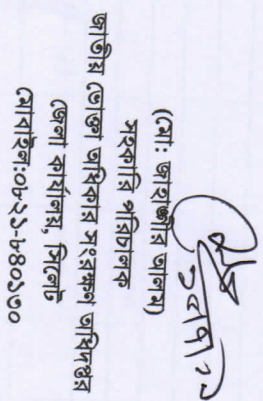 (মো: জাহাঙ্গীর আলম)
সহকারি পরিচালক
জাতীয় ভোক্তা অধিকার সংরক্ষণ অধিদপ্তর
জেলা কার্যালয়, সিলেট
মোবাইল:০৮২১-৮৪০১৩০